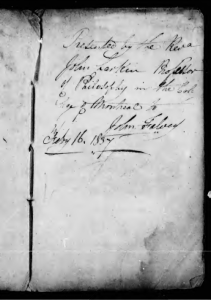 Presented by the Revd
John Larkin Professor
of Philosophy in the Col
lege of Montreal to
John
Feby 16. 1837